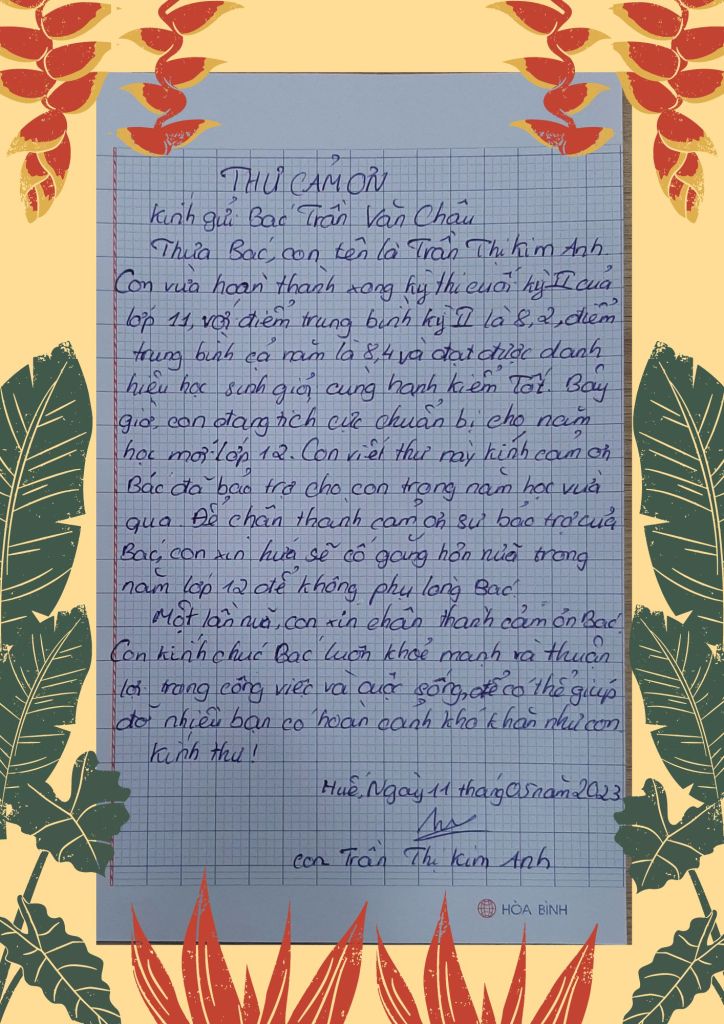 THƯ CẢM ƠN
Kính gửi Bác Trần Văn Châu
Thưa Bác, con tên là Trần Thị Kim Anh.
Con vừa hoàn thành xong kỳ thi cuối kỳ II của
lớp 11, với điểm trung bình kỳ II là 8,2, điểm
trung bình cả năm là 8,4 và đạt được danh
hiệu học sinh giỏi, cùng hạnh kiểm Tốt. Bây
giờ, con đang tích cực chuẩn bị cho năm
học mới lớp 12. Con viết thư này kính cảm ơn
Bác đã bảo trợ cho con trong năm học vừa
qua. Để chân thành cảm ơn sự bảo trợ của
Bác, con xin hứa sẽ cố gắng hơn nữa trong
năm lớp 12 để không phụ lòng Bác!
Một lần nữa, con xin chân thành cảm ơn Bác!
Con kính chúc Bác luôn khoẻ mạnh và thuận
lợi trong công việc và cuộc sống, để có thể giúp
đỡ nhiều bạn có hoàn cảnh khó khăn như con.
Kính thư!
Huế, Ngày 11 tháng 05 năm 2023
con Trần Thị Kim Anh
HÒA BÌNH